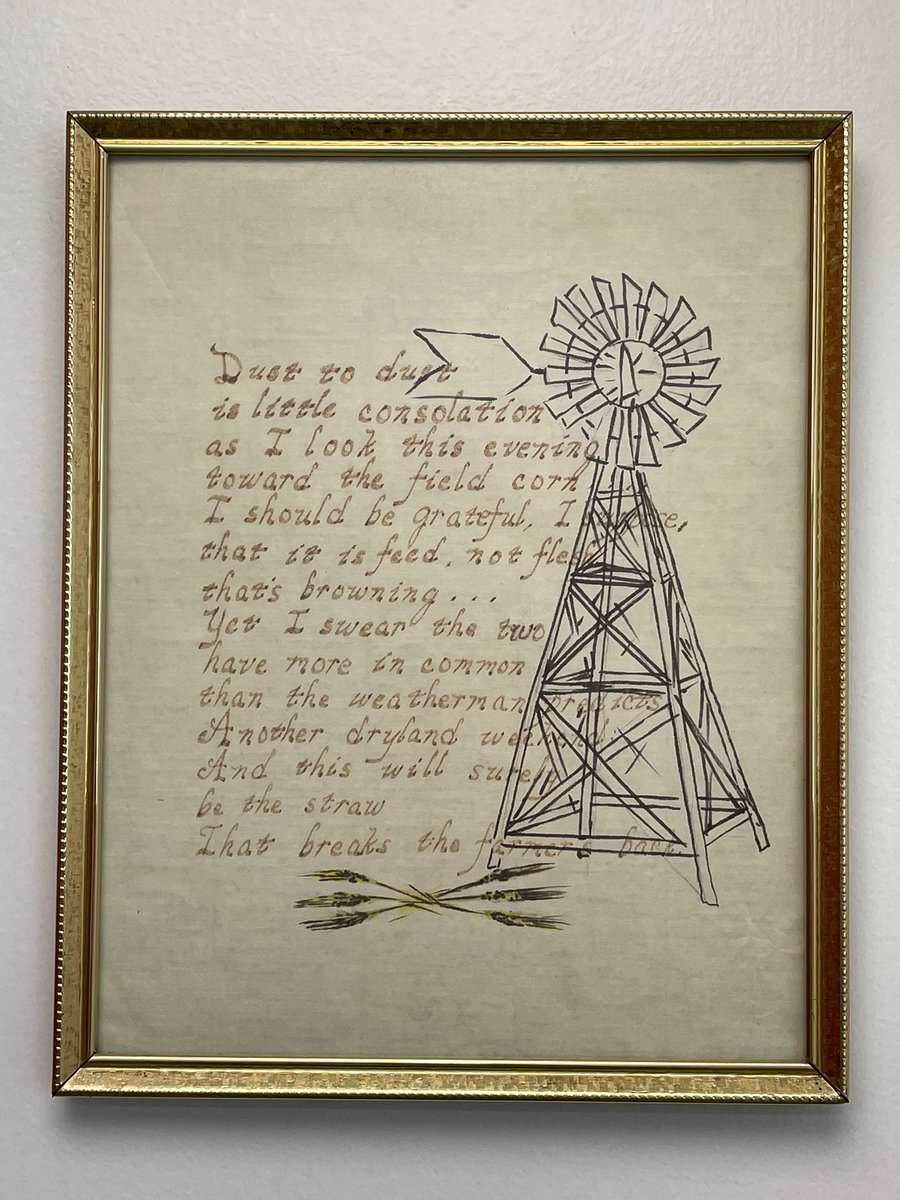 Dust to dust
is little consolation
as I look this evening
toward the field corn
I should be grateful, I
that it is feed, not flesh
that's browning...
Yet I swear the two
have more in common
than the weatherman predicts
Another dryland weekend;
And this will surely
be the straw
That breaks the farmer's back